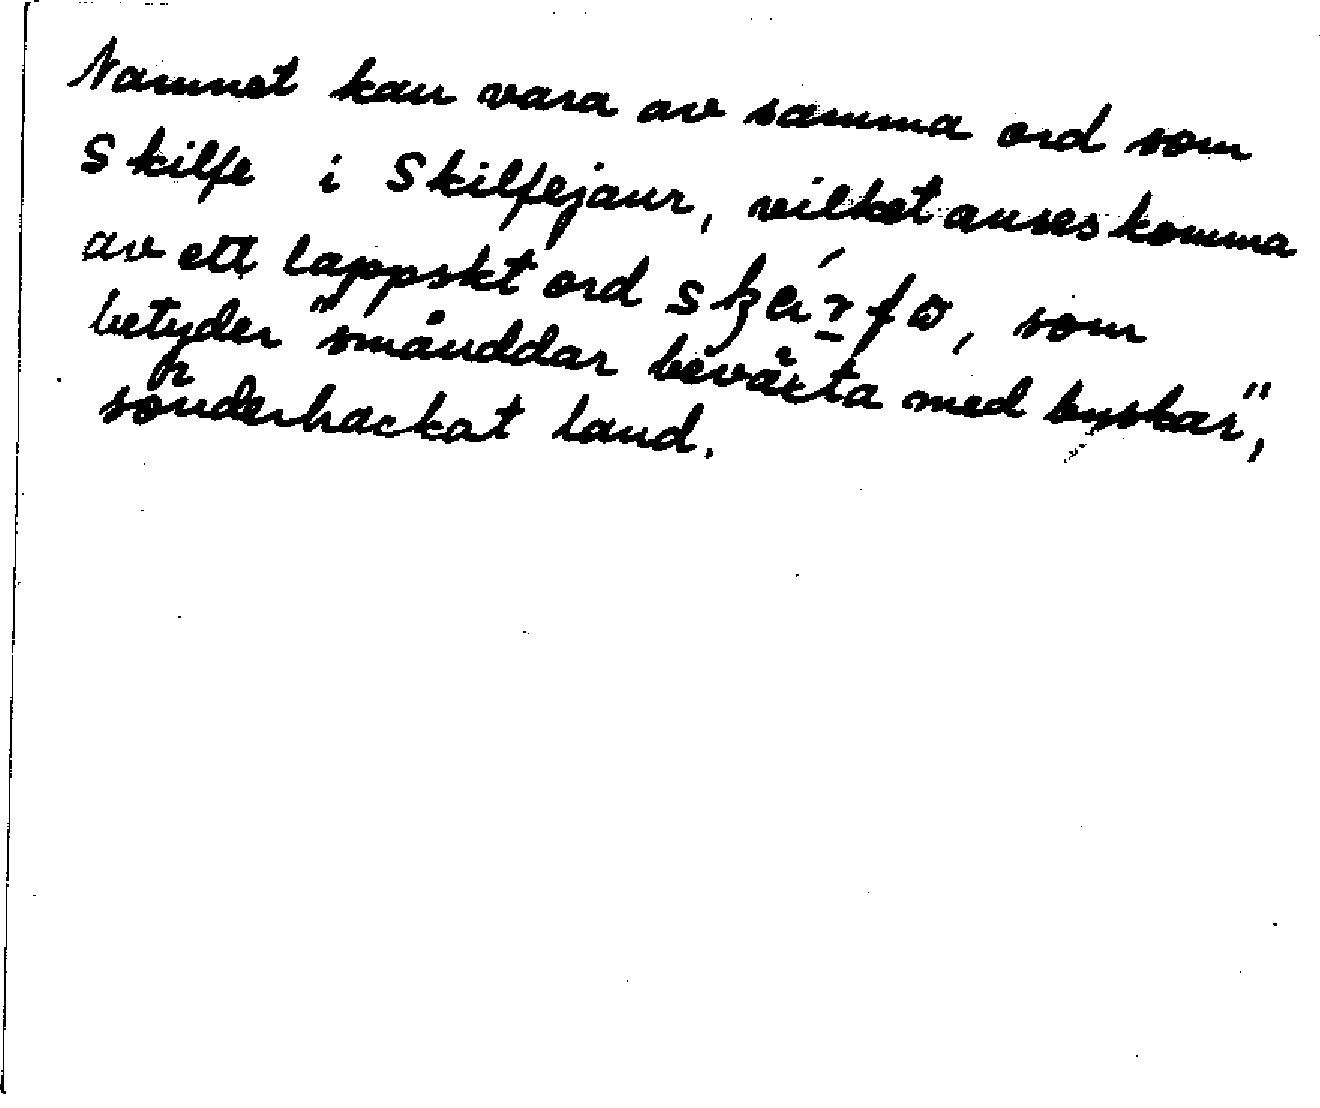 Namnet kan vara av samma ord som
Skilfe i Skilfejaur, vilket anses komma
av ett lappskt ord , som
betyder "småuddar beväxta med buskar",
sönderhackat land.